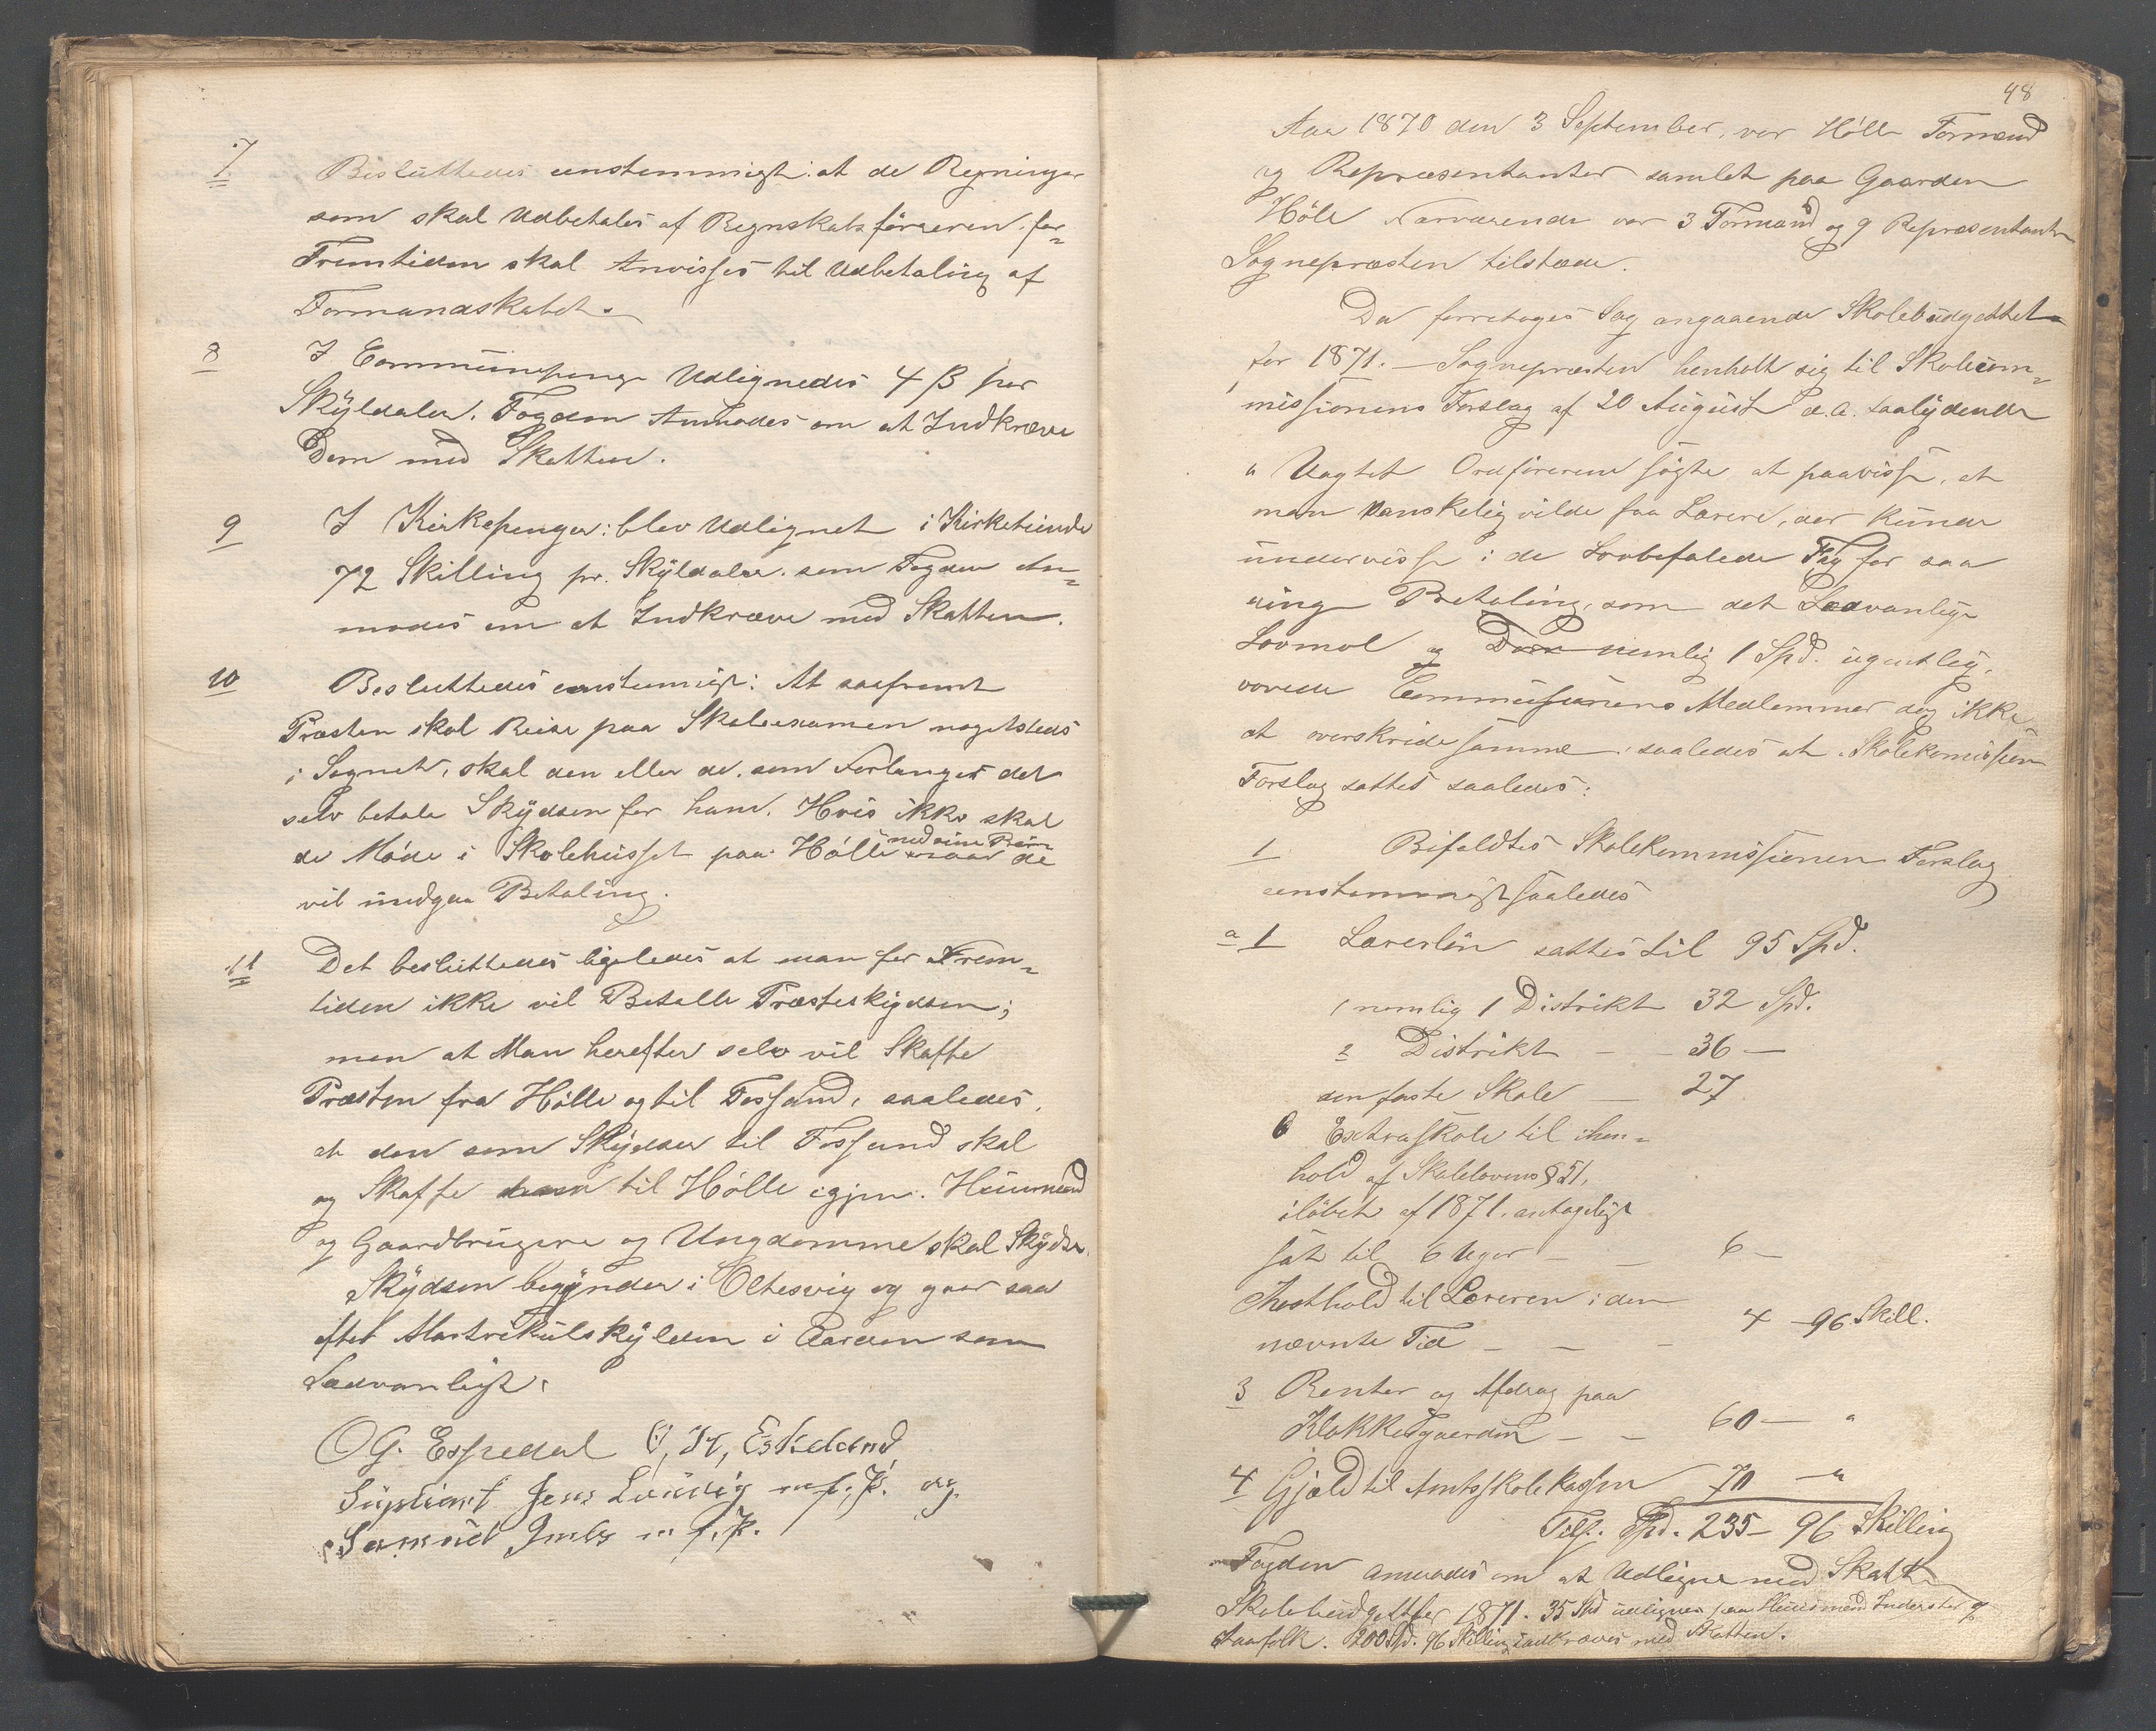 7 Besluttedes eenstemmigt: at de Regninger
som skal Udbetales af Regnskabsføreren for
Fremtiden skal Anvisses til Udbetaling af
Formandskabet.
8 I Communepenge Udlignedes 4 β per
Skÿldaler. Fogden Anmodes om at Indkræve
Dem med Skatten.
9 I Kirkepenger: blev Udlignet i Kirketiende
72 Skilling pr. Skÿldaler. som Fogden An-
modes om at Indkræve med Skatten.
10 Besluttedes eenstemmigt: At saafremt
Præsten skal Reise paa Skoleexamen nogetsteds
i Sognet, skal den eller de, som Forlanger det
selv betale Skÿdsen for ham. Hvis ikke skal
de Møde i Skolehusset paa Hölle med sine Børn naar de
vil undgaa Betaling.
11 Det besluttedes ligeledes at man for Frem-
tiden ikke vil Betalle Præsteskydsen;
men at Man herefter selv vil Skaffe
Præsten fra Hölle og til Fossand, saaledes,
at den som Skÿdser til Fossand skal
og Skaffe ham til Hölle igjen. Huusmænd
og Gaardbrugere og Ungdomme skal Skÿdse.
Skÿdsen begÿnder i Oltesvig og gaar saa
efter Matrikulskÿlden i Raden som
Sædvanligt.
O G. Espedal O, N, Eskeland
Jens Lauvvig m. f. P. og
Samuel m. f. P.
48
Aar 1870 den 3 September, var Hölle Formænd
og Repræsentanter samlet paa Gaarden
Höle Nærværende var 3 Formænd og 9 Repræsentanter
Sognepræsten tilstæde.
Da forretoges Sag angaaende Skolebudgettet
for 1871. — Sognepræsten henholt sig til Skolecom-
missionens Forslag af 20 August d.a. saalÿdende
" Uagtet Ordføreren søgte at paavisse, at
man vanskelig vilde faa Lærere, der kunde
undervisse i de Lovbefalede Fag for saa
ringe Betaling, som det Sædvanlige
Lovmol og nemlig 1 Spd. ugentlig,
vovede Commissionens Medlemmer dog ikke
at overskride samme, saaledes at Skolekomissjen
Forslag sattes saaledes:
1 Bifaldtes Skolekommissionen Forslag
eenstemmigt saaledes
a 1 Lærerløn sattes til 95 Spd.
nemlig 1 Distrikt 32 Spd.
2 Distrikt — — 36 —
den faste Skole — 27
b Extraskole til ihen-
hold af Skolelovens § 51,
iløbet af 1871. antageligt
sat til 6 Uger — — 6 —
Kosthold til Læreren i den
nævnte Tid — — — 4 — 96 Skill.
3 Renter og Afdrag paa
Klokkergaarden — — 60 — "
4 Gjæld til Amtsskolekassen 70 — "
Tils. Spd. 235 — 96 Skilling
Fogden anmodes om at Udligne med Skatten
Skolebudgettet for 1871. 35 Spd udlignes paa Huusmænd Inderster og
Laasfolk. 200 Spd. 96 Skilling indkræves med Skatten.